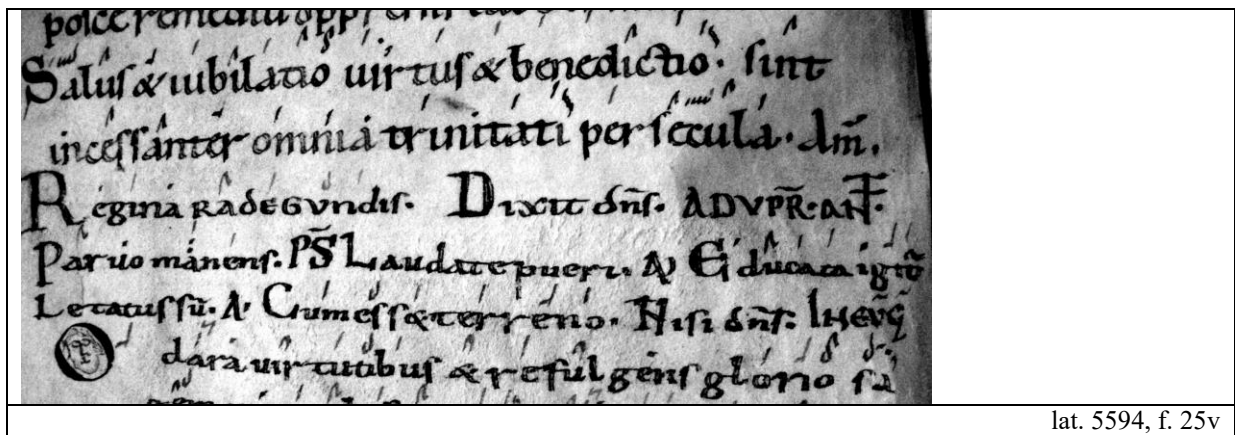 polce remediũ opp
Saluſ & iubilatio uirtuſ & benedictio· ſint
inceſſanter omnia trinitati per ſecula· Am̄.
Regina RADEGVNDIſ· Dixit dn̄ſ· AD VPR̄· AÑ·
Paruo manenſ· PS̄ Laudate pueri· A Educata igit̄
Letatuſ ſũ· A· Cum eſſ& terreno· Niſi dn̄ſ· IN EVG̃
O dara uirtutibuſ & refulgenſ glorioſa
lat. 5594, f. 25v